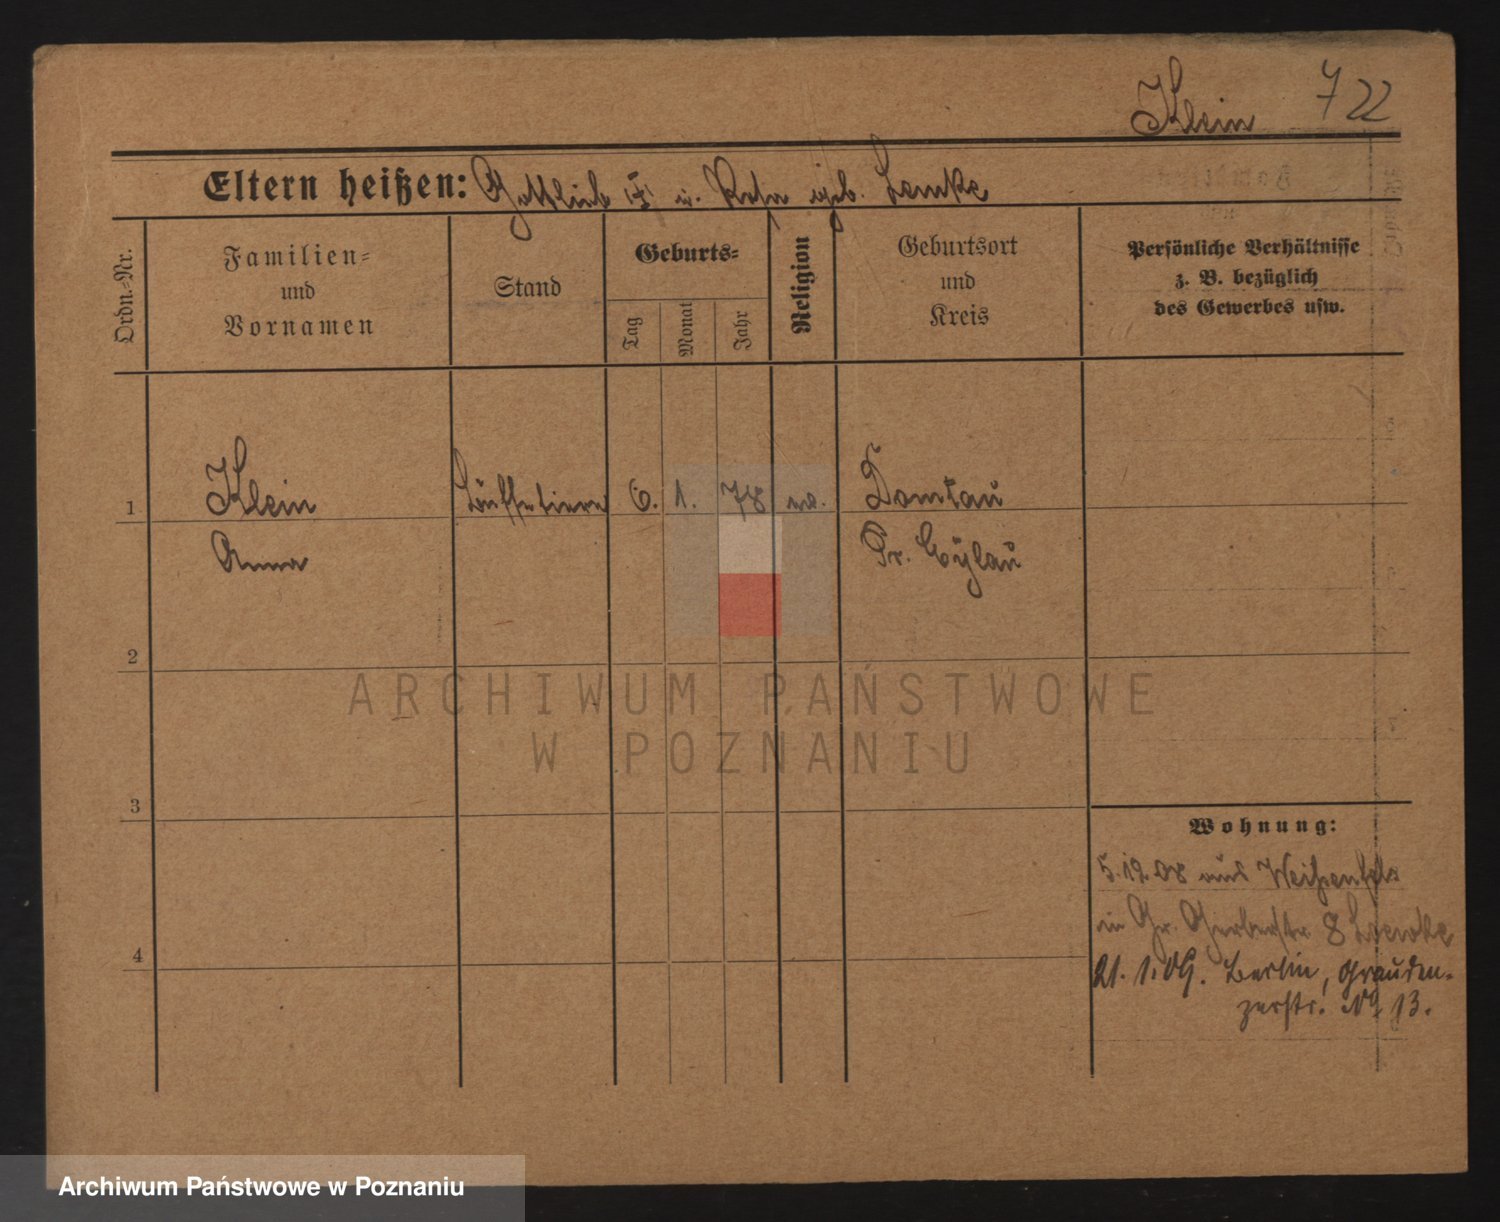 Klein 722
Eltern heißen: Gottlieb u. Rosa geb. Lemke
Ordn.-Nr.
Familien=
und
Vornamen
Stand
Geburts=
Tag
Monat
Jahr
Religion
Geburtsort
und
Kreis
Persönliche Verhältnisse
z. B. bezüglich
des Gewerbes usw.
1 Klein Büffetiere 6. 1. 78 ev. Domtau
Anna Pr. Eylau
2
3
4
Wohnung:
5.12.08 aus Weißenfels
in Gr. Gerberstr. 8
21. 1. 09. Berlin, Grauden-
zerstr. No 13.
ARCHIWUM PAŃSTWOWE
W POZNANIU
Archiwum Państwowe w Poznaniu